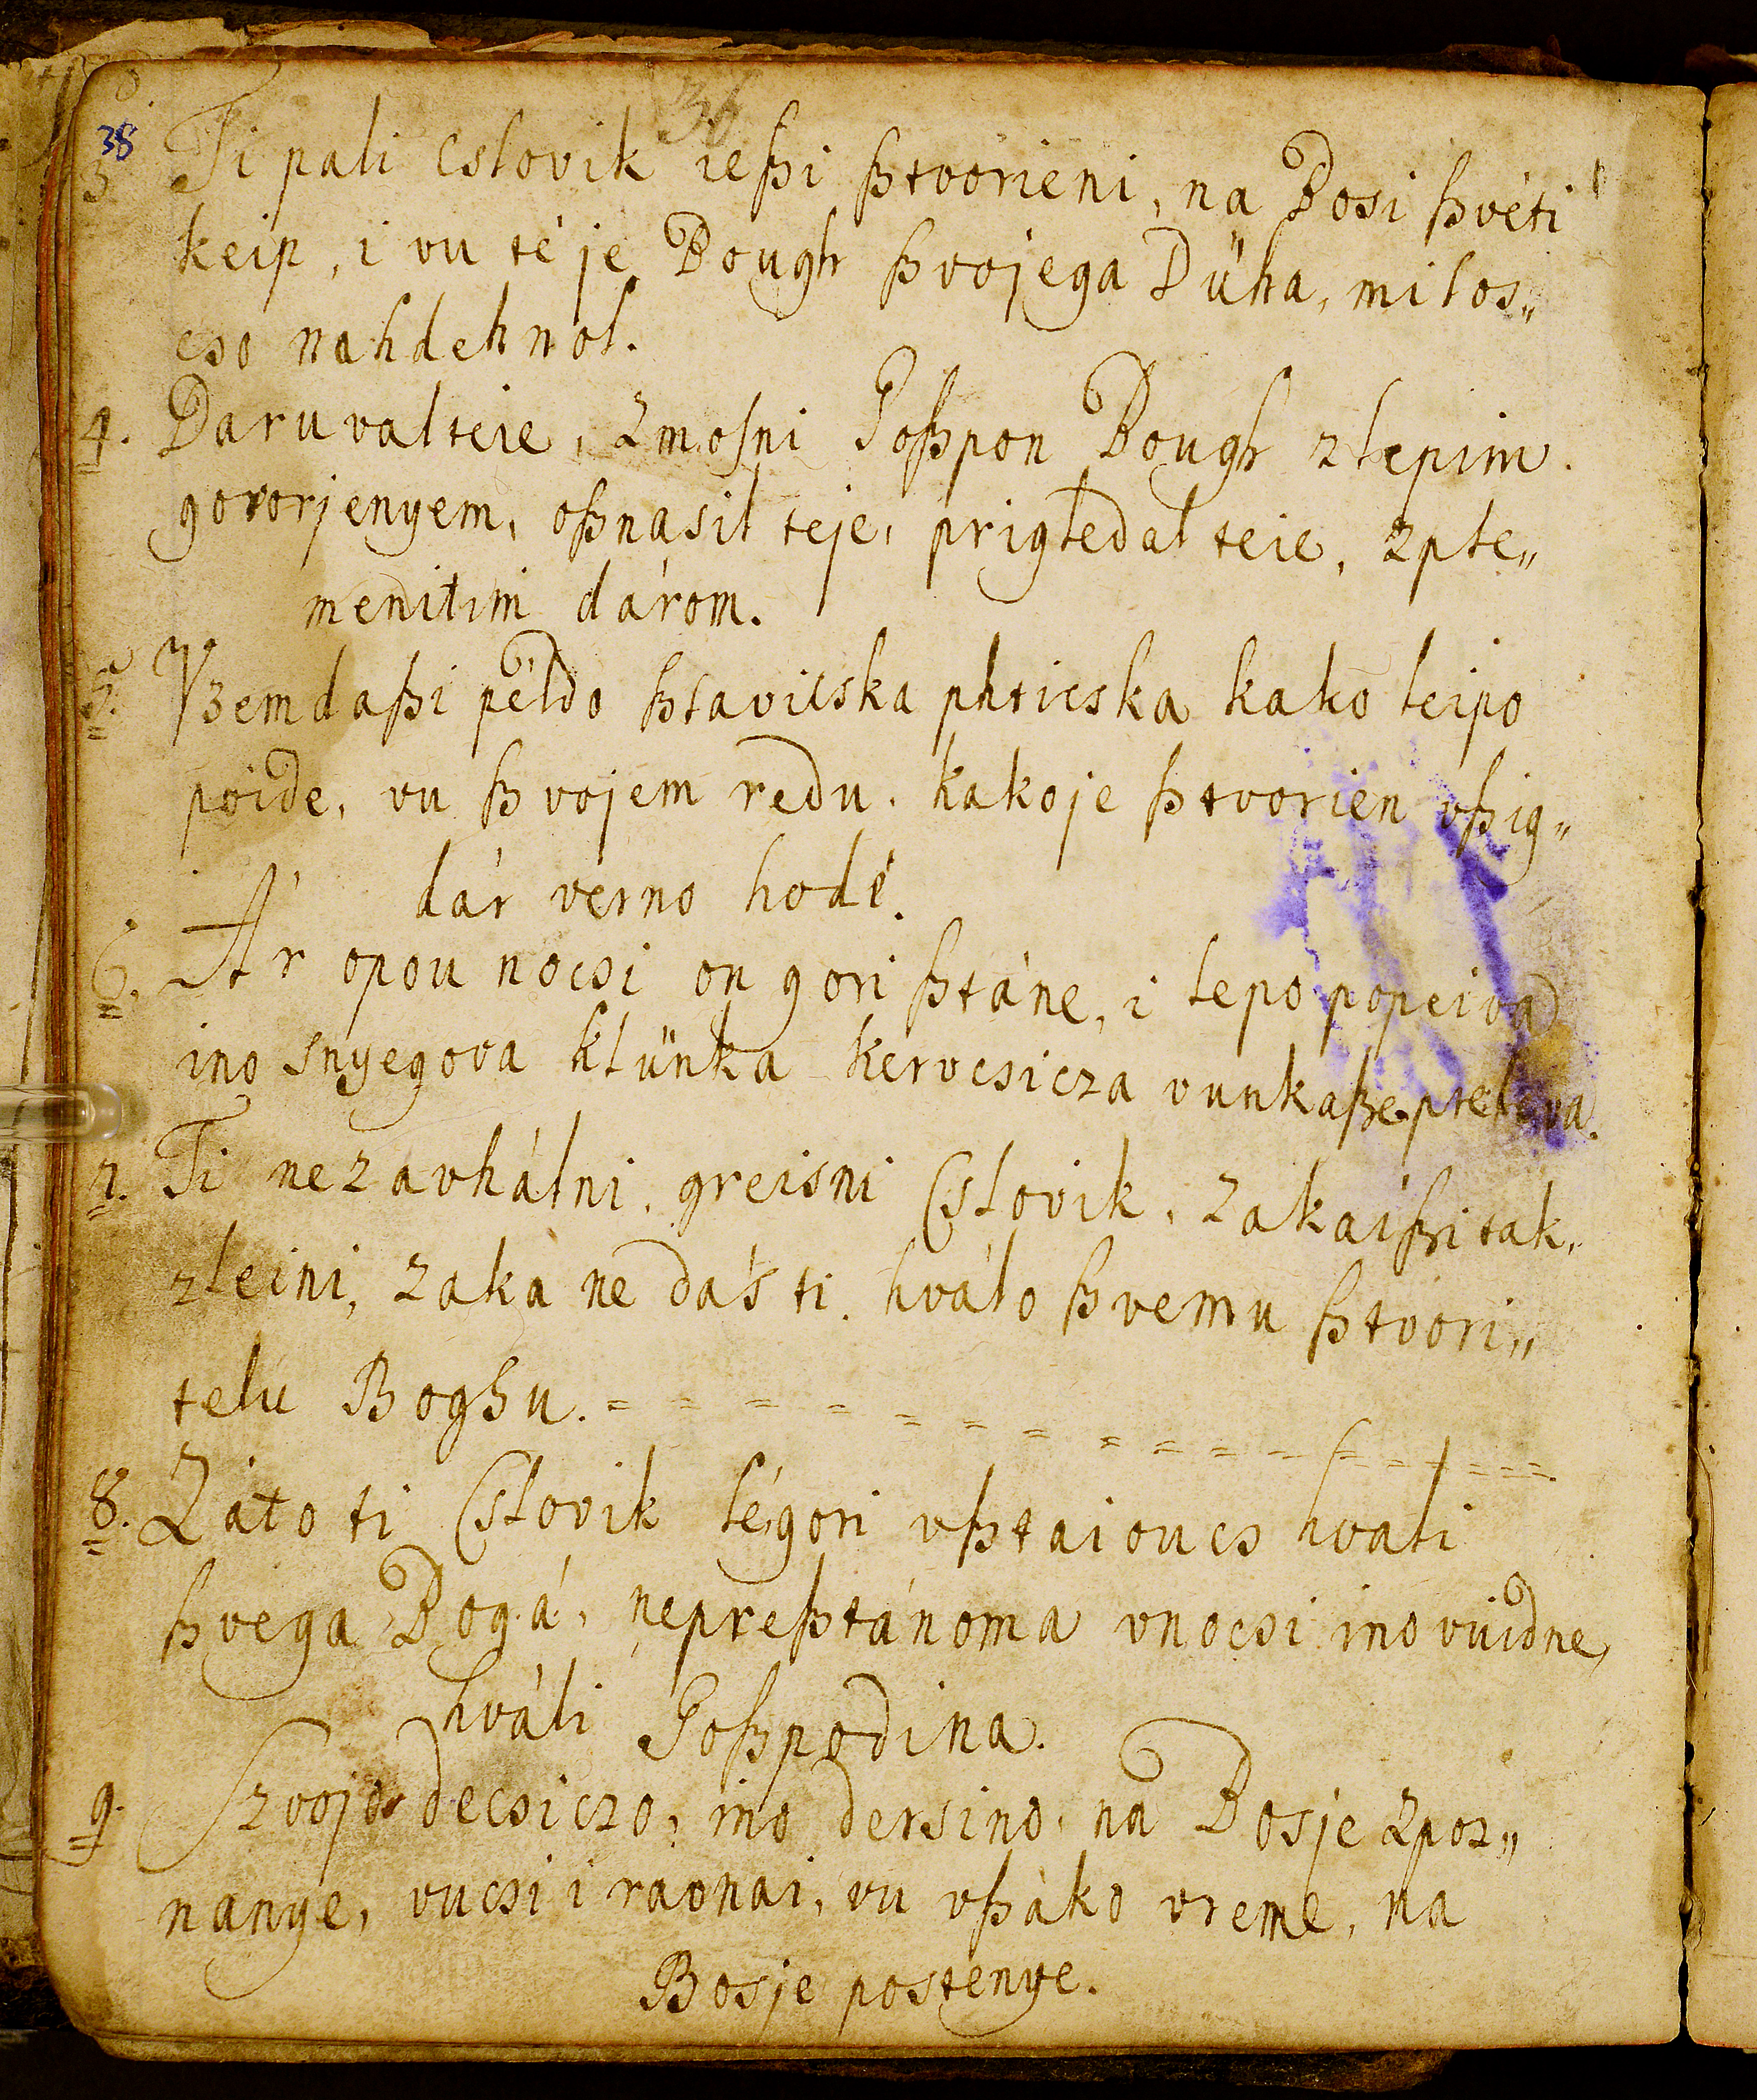 36
38
3 Ti pali cslovik ießi ßtvorieni, na Bosi ßvéti
keip, i vu té je Bough ßvojega Düha, milos„
cso nahdehnol.
4. Daruvalteie, Zmosni Goßpon Bough zlepim
govorjenyem, oßnasil teje, prigledal teie, zple„
menitim dárom.
5. Vzemdaßi példo ßlavicska phticska kako leipo
poide, vu ßvojem redu, kakoje ßtvorien vßig„
dár verno hodé.
6. Ár opou nocsi on gori ßtáne, i lepo popeiva
ino snyegova klünka kervcsicza vunkaße
7. Ti nezavhálni, greisni Cslovik, zakaißi tak
zleini, zaka ne dás ti hválo ßvemu ßtvori„
telu Boghu. = = = = = = = = = = = = = = =
8. Záto ti Cslovik lé gori vßtaioucs hvali
ßvega Bogá, nepreßtánoma vnocsi ino vuidne,
hváli Goßpodina.
9. Szvojo decsiczo, ino dersino, na Bosje zpoz„
nanye, vucsi i ravnai, vu vßáko vreme, na
Bosje postenye.